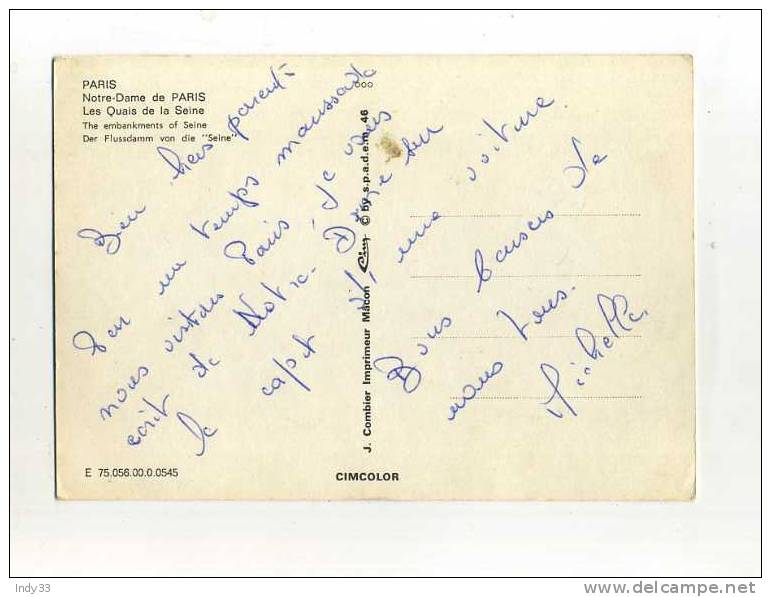 PARIS
Notre-Dame de PARIS
Les Quais de la Seine
The embankments of Seine
Der Flussdamm von die "Seine"
Bien chers parents
Par un temps maussade
nous visitons Paris. Je vous
écrit de Notre-Dame sur
le capot d'une voiture.
Bons baisers de
nous tous.
Michelle.
J. Combier Imprimeur Mâcon Cim © by s.p.a.d.e.m. 46
E 75.056.00.0.0545
CIMCOLOR
Indy33
www.delcampe.net